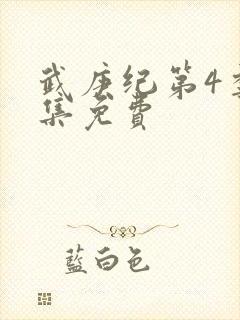 武庚纪第4
集免费
藍白色